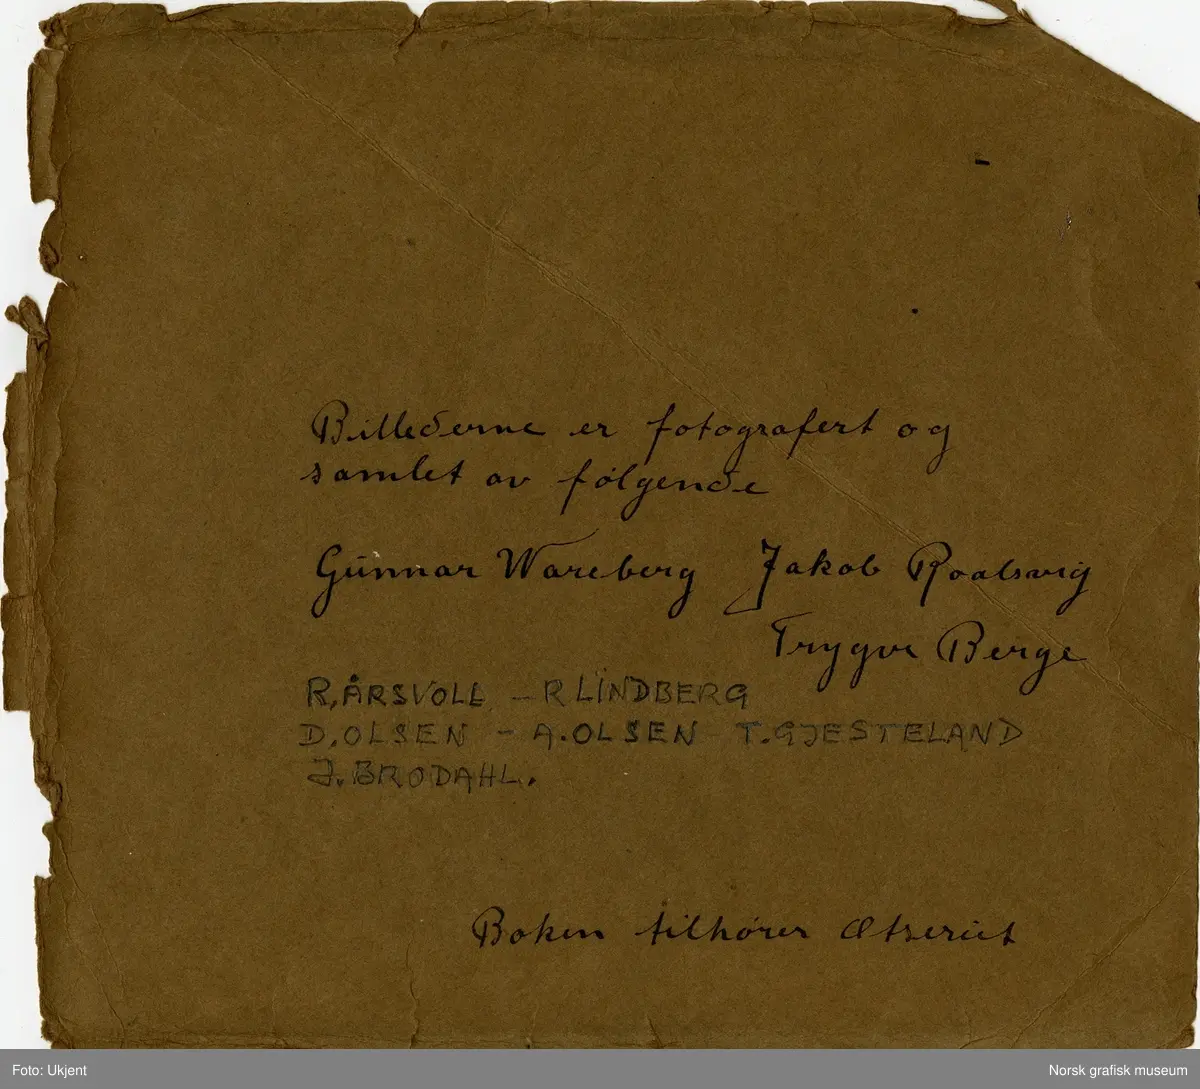 Billederne er fotografert og
samlet av følgende
Gunnar Wareberg Jakob Roalsvig
Trygve Berge
R, ÅRSVOLL - R LINDBERG
D. OLSEN - A. OLSEN - T. GJESTELAND
J. BRODAHL.
Boken tilhører Ætseriet
Foto: Ukjent
Norsk grafisk museum